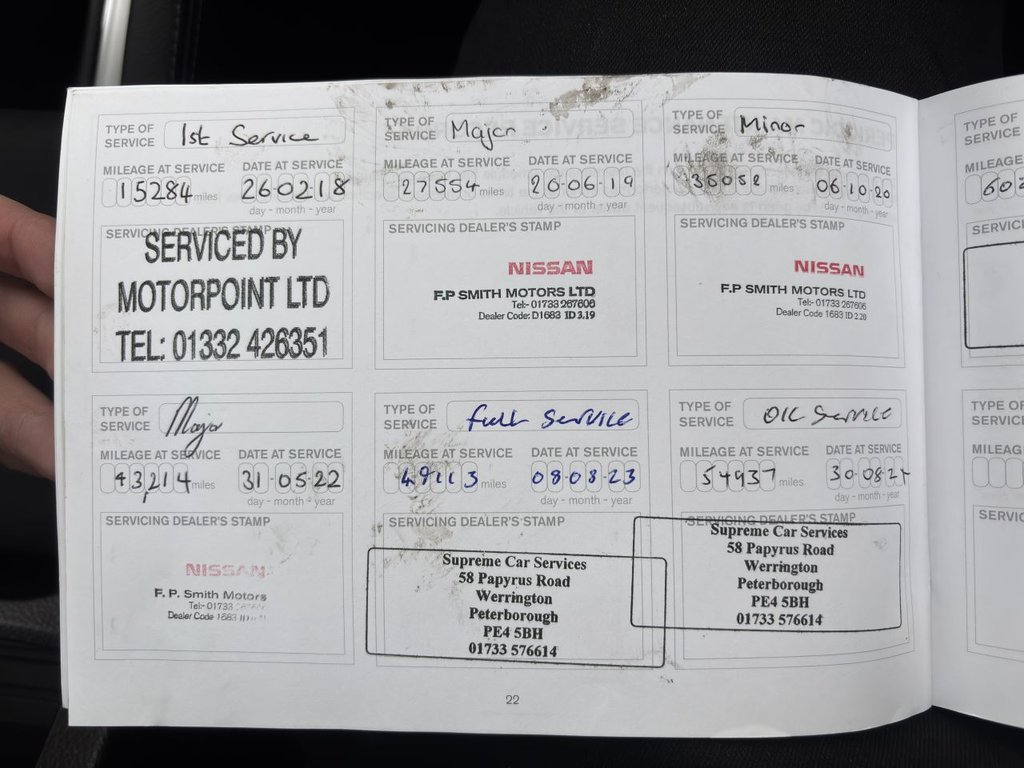 TYPE OF
SERVICE 1st Service
MILEAGE AT SERVICE DATE AT SERVICE
15284 miles 260218
day - month - year
SERVICING DEALER'S STAMP
SERVICED BY
MOTORPOINT LTD
TEL: 01332 426351
TYPE OF
SERVICE Major
MILEAGE AT SERVICE DATE AT SERVICE
27554 miles 20-06-19
day - month - year
SERVICING DEALER'S STAMP
NISSAN
F.P SMITH MOTORS LTD
Tel:- 01733 267606
Dealer Code: D1683 ID 3.19
TYPE OF
SERVICE Minor
MILEAGE AT SERVICE DATE AT SERVICE
36052 miles 06-10-20
day - month - year
SERVICING DEALER'S STAMP
NISSAN
F.P SMITH MOTORS LTD
Tel:- 01733 267606
Dealer Code 1683 ID 2.20
TYPE OF
SERVICE
MILEAGE
SERVIC
TYPE OF
SERVICE Major
MILEAGE AT SERVICE DATE AT SERVICE
43,214 miles 31-05-22
day - month - year
SERVICING DEALER'S STAMP
NISSAN
F. P. Smith Motors
Tel:- 01733
Dealer Code 1683 ID
TYPE OF
SERVICE full Service
MILEAGE AT SERVICE DATE AT SERVICE
49113 miles 08-08-23
day - month - year
SERVICING DEALER'S STAMP
Supreme Car Services
58 Papyrus Road
Werrington
Peterborough
PE4 5BH
01733 576614
TYPE OF
SERVICE OIL Service
MILEAGE AT SERVICE DATE AT SERVICE
54937 miles 30-08-24
day - month - year
SERVICING DEALER'S STAMP
Supreme Car Services
58 Papyrus Road
Werrington
Peterborough
PE4 5BH
01733 576614
TYPE OF
SERVICE
MILEAG
SERVIC
22